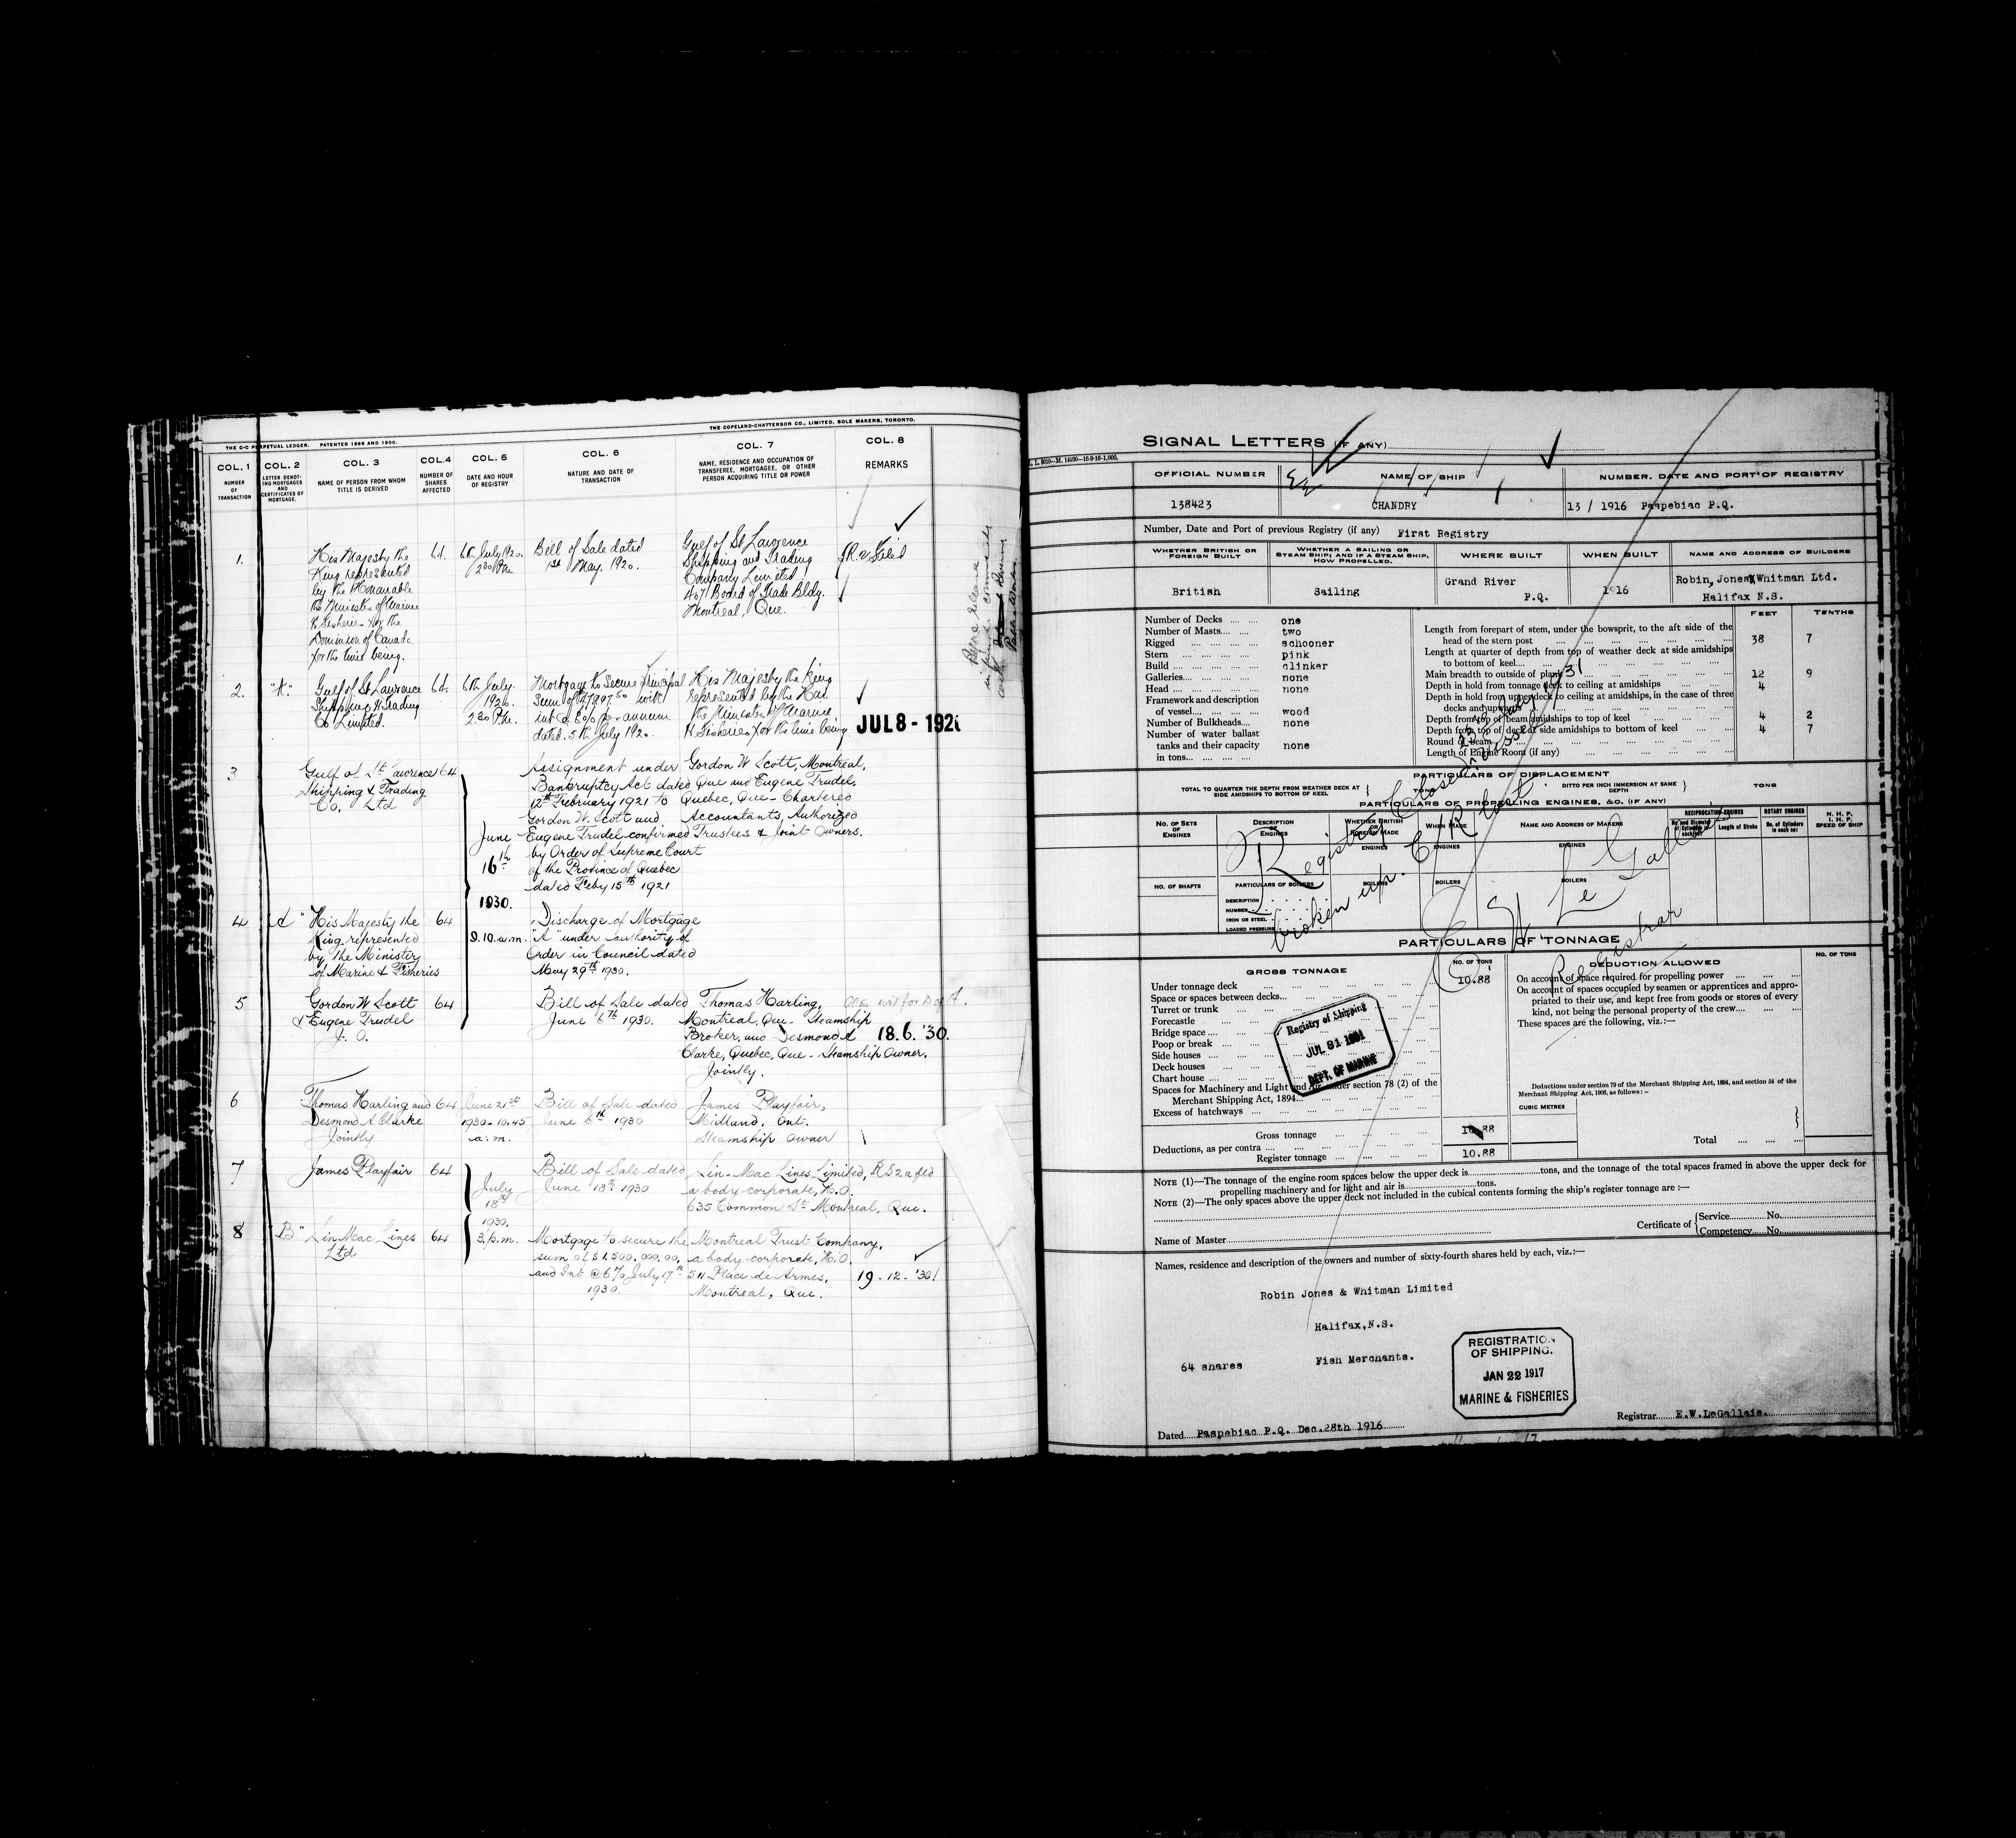 THE C-C PERPETUAL LEDGER. PATENTED 1896 AND 1900.
THE COPELAND-CHATTERSON CO., LIMITED, SOLE MAKERS, TORONTO.
COL. 1 COL. 2 COL. 3 COL. 4 COL. 5 COL. 6 COL. 7 COL. 8
NUMBER OF TRANSACTION
LETTER DENOT-ING MORTGAGES AND CERTIFICATES OF MORTGAGE.
NAME OF PERSON FROM WHOM TITLE IS DERIVED
NUMBER OF SHARES AFFECTED
DATE AND HOUR OF REGISTRY
NATURE AND DATE OF TRANSACTION
NAME, RESIDENCE AND OCCUPATION OF TRANSFEREE, MORTGAGEE, OR OTHER PERSON ACQUIRING TITLE OR POWER
REMARKS
1.
His Majesty the
King represented
by the Honourable
the Minister of Marine
& Fisheries for the
Dominion of Canada
for the time being.
64.
6th July 1920.
2.30 P.M.
Bill of Sale dated
1st May. 1920.
Gulf of St Lawrence
Shipping and Trading
Company Limited
407 Board of Trade Bldg.
Montreal, Que.
2. "A."
Gulf of St Lawrence
Shipping & Trading
Co Limited.
64.
6th July.
1920.
2.30 P.M.
Mortgage to secure principal
int @ 6% per annum
dated. 5th July 1920.
His Majesty the King
represented by the Hon.
the Minister of Marine
& Fisheries for the time being.
JUL 8 - 1920
3
Gulf of St Lawrence
Shipping & Trading
Co., Ltd
64
June
16th
1930.
9.10. a.m.
Assignment under
Bankruptcy Act dated
12th February 1921 to
Gordon W. Scott and
Eugene Trudel confirmed
by Order of Supreme Court
of the Province of Quebec
dated Feby 15th 1921
Gordon W Scott, Montreal,
Que and Eugene Trudel,
Quebec, Que - Chartered
Accountants, Authorized
Trustees & Joint Owners.
4
His Majesty the
King represented
by the Ministry
of Marine & Fisheries
64
Discharge of Mortgage
"A" under authority of
Order in Council dated
May 29th 1930.
5
Gordon W Scott
& Eugene Trudel
J. O.
64
Bill of Sale dated
June 6th 1930.
Thomas Harling,
Montreal, Que - Steamship
Broker, and Desmond A
Clarke, Quebec, Que - Steamship Owner,
Jointly.
18.6.'30.
6
Thomas Harling and
Desmond A Clarke
Jointly
64
June 21st
1930 - 10.45
a.m.
Bill of Sale dated
June 6th 1930
James Playfair,
Midland, Ont.
Steamship Owner
7
James Playfair
64
July
18th
1930.
3. p.m.
Bill of Sale dated
June 18th 1930
Lin-Mac Lines Limited,
a body corporate, H.O.
635 Common St Montreal, Que.
8 "B"
Lin Mac Lines
Ltd
64
Mortgage to secure the
sum of $1,500,000.00,
and Int @ 6% July 17th
1930.
Montreal Trust Company,
a body corporate, H.O.
511 Place de Armes,
Montreal, Que.
19 - 12 - '30
SIGNAL LETTERS (IF ANY)
OFFICIAL NUMBER NAME OF SHIP NUMBER, DATE AND PORT OF REGISTRY
138423 CHANDRY 13 / 1916 Paspebiac P.Q.
Number, Date and Port of previous Registry (if any) First Registry
WHETHER BRITISH OR FOREIGN BUILT
WHETHER A SAILING OR STEAM SHIP; AND IF A STEAM SHIP, HOW PROPELLED.
WHERE BUILT WHEN BUILT NAME AND ADDRESS OF BUILDERS
British Sailing Grand River P.Q. 1916 Robin, Jones & Whitman Ltd.
Halifax N.S.
FEET TENTHS
Number of Decks one
Number of Masts two
Rigged schooner
Stern pink
Build clinker
Galleries none
Head none
Framework and description
of vessel wood
Number of Bulkheads none
Number of water ballast
tanks and their capacity
in tons none
Length from forepart of stem, under the bowsprit, to the aft side of the
head of the stern post 38 7
Length at quarter of depth from top of weather deck at side amidships
to bottom of keel
Main breadth to outside of plank 12 9
Depth in hold from tonnage deck to ceiling at amidships 4
Depth in hold from upper deck to ceiling at amidships, in the case of three
decks and upwards
Depth from top of beam amidships to top of keel 4 2
Depth from top of deck at side amidships to bottom of keel 4 7
Round of beam
Length of Engine Room (if any)
PARTICULARS OF DISPLACEMENT
TOTAL TO QUARTER THE DEPTH FROM WEATHER DECK AT SIDE AMIDSHIPS TO BOTTOM OF KEEL TONS
DITTO PER INCH IMMERSION AT SAME DEPTH TONS
PARTICULARS OF PROPELLING ENGINES, &C. (IF ANY)
NO. OF SETS OF ENGINES
DESCRIPTION OF ENGINES
WHETHER BRITISH OR FOREIGN MADE
WHEN MADE
NAME AND ADDRESS OF MAKERS
RECIPROCATING ENGINES
Length of Stroke
ROTARY ENGINES
No. of Cylinders in each set
N. H. P.
I. H. P.
SPEED OF SHIP
ENGINES ENGINES ENGINES
NO. OF SHAFTS PARTICULARS OF BOILERS BOILERS BOILERS BOILERS
DESCRIPTION
NUMBER
IRON OR STEEL
LOADED PRESSURE
Registry Closed
July 1931
Vessel
broken up.
E W Le Gallais
Registrar
PARTICULARS OF TONNAGE
GROSS TONNAGE NO. OF TONS DEDUCTION ALLOWED NO. OF TONS
Under tonnage deck 10.88
Space or spaces between decks
Turret or trunk
Forecastle
Bridge space
Poop or break
Side houses
Deck houses
Chart house
Spaces for Machinery and Light and Air under section 78 (2) of the
Merchant Shipping Act, 1894
Excess of hatchways
Gross tonnage 10.88
Deductions, as per contra
Register tonnage 10.88
Registry of Shipping
JUL 31 1931
DEPT. OF MARINE
On account of space required for propelling power
On account of spaces occupied by seamen or apprentices and appro-
priated to their use, and kept free from goods or stores of every
kind, not being the personal property of the crew
These spaces are the following, viz.:—
Deductions under section 79 of the Merchant Shipping Act, 1894, and section 54 of the
Merchant Shipping Act, 1906, as follows:—
CUBIC METRES
Total
NOTE (1)—The tonnage of the engine room spaces below the upper deck is tons, and the tonnage of the total spaces framed in above the upper deck for
propelling machinery and for light and air is tons.
NOTE (2)—The only spaces above the upper deck not included in the cubical contents forming the ship's register tonnage are :—
Certificate of Service No.
Competency No.
Name of Master
Names, residence and description of the owners and number of sixty-fourth shares held by each, viz.:—
Robin Jones & Whitman Limited
Halifax, N.S.
64 shares Fish Merchants.
REGISTRATION
OF SHIPPING.
JAN 22 1917
MARINE & FISHERIES
Dated Paspebiac P.Q. Dec. 28th 1916
Registrar E.W. LeGallais.